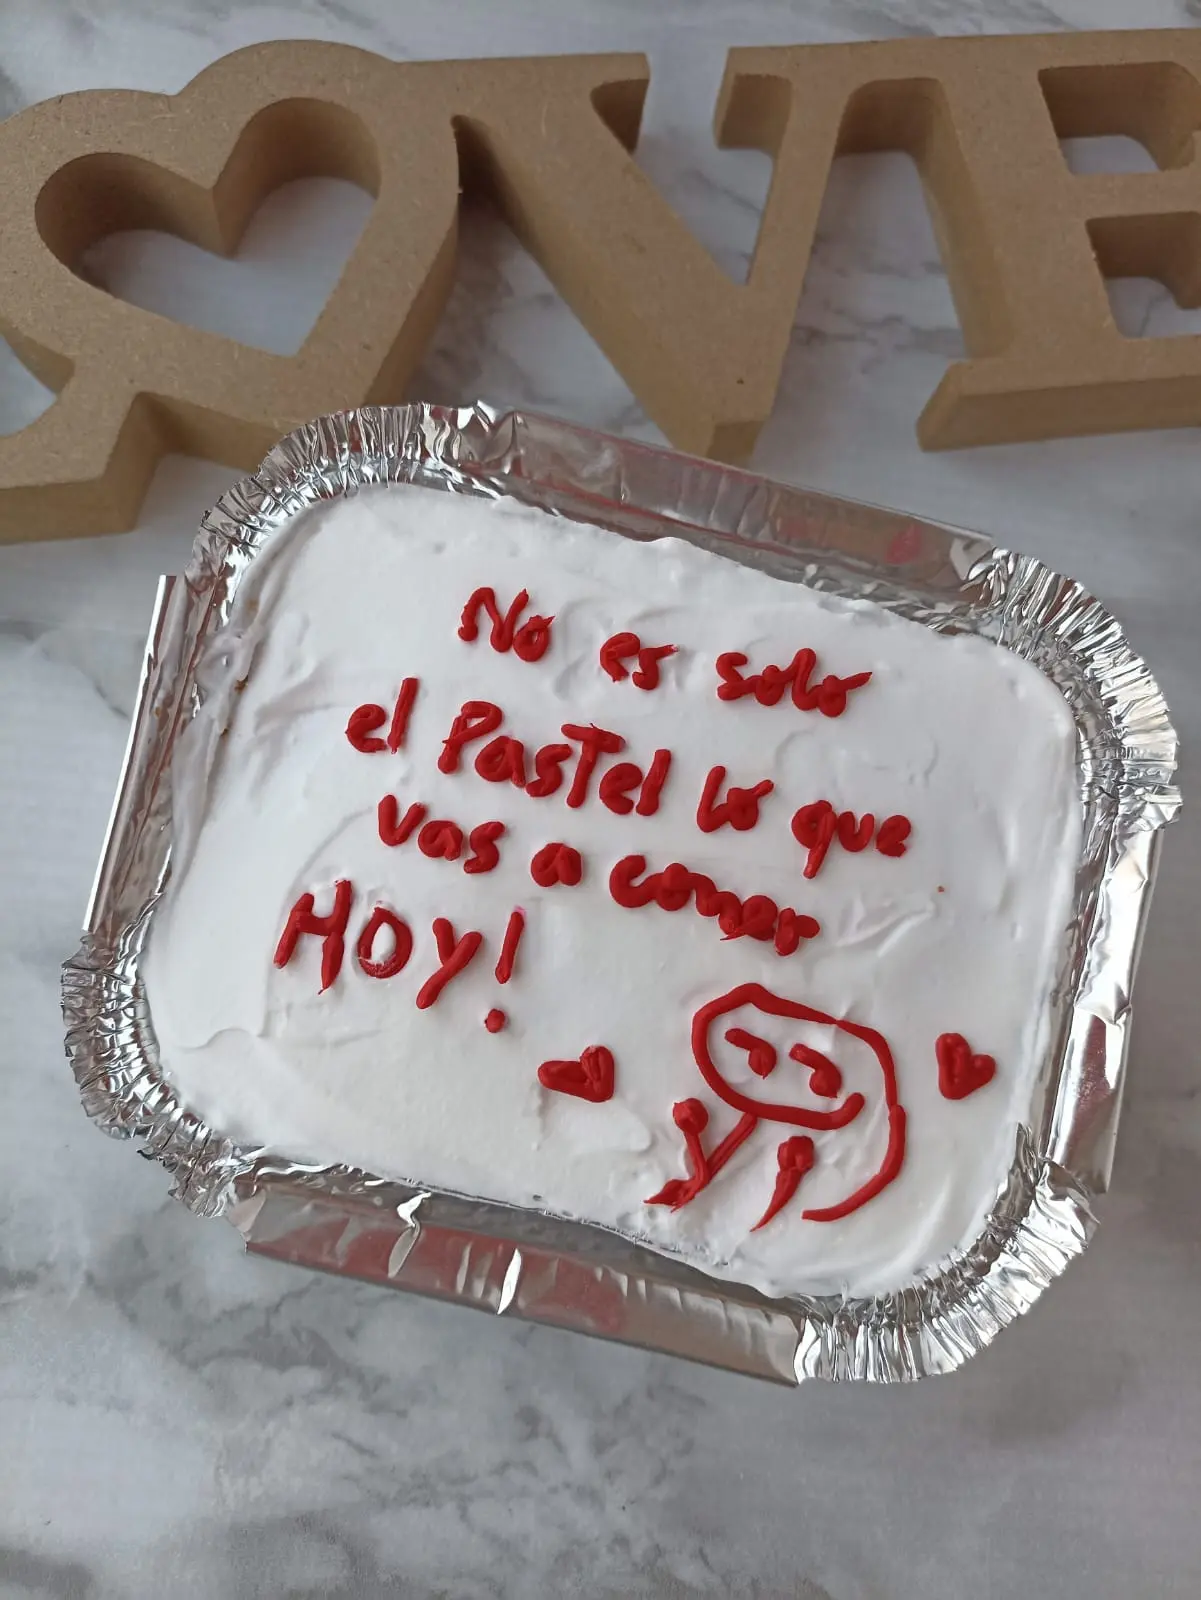 LOVE
No es solo
el Pastel lo que
vas a comer
HOY!